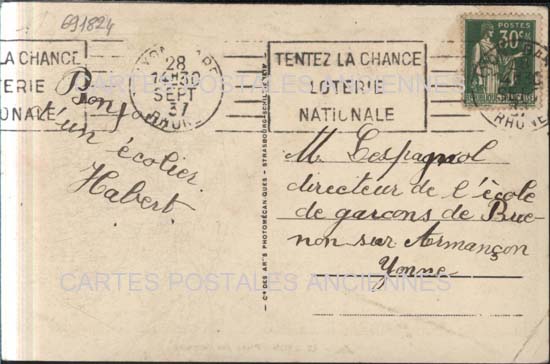 691824
LA CHANCE
TERIE
NALE
28
14H30
SEPT
37
RHONE
TENTEZ LA CHANCE
LOTERIE
NATIONALE
POSTES
30c
RHONE
CARTES POSTALES ANCIENNES
Bonjour
d'un écolier
Habert
M. Lespagnol
directeur de l'école
de garçons de Bue-
non sur Armançon
Yonne
Cie DES ARTS PHOTOMÉCANIQUES - STRASBOURG-SCHILTIGHEIM
CARTES POSTALES ANCIENNES